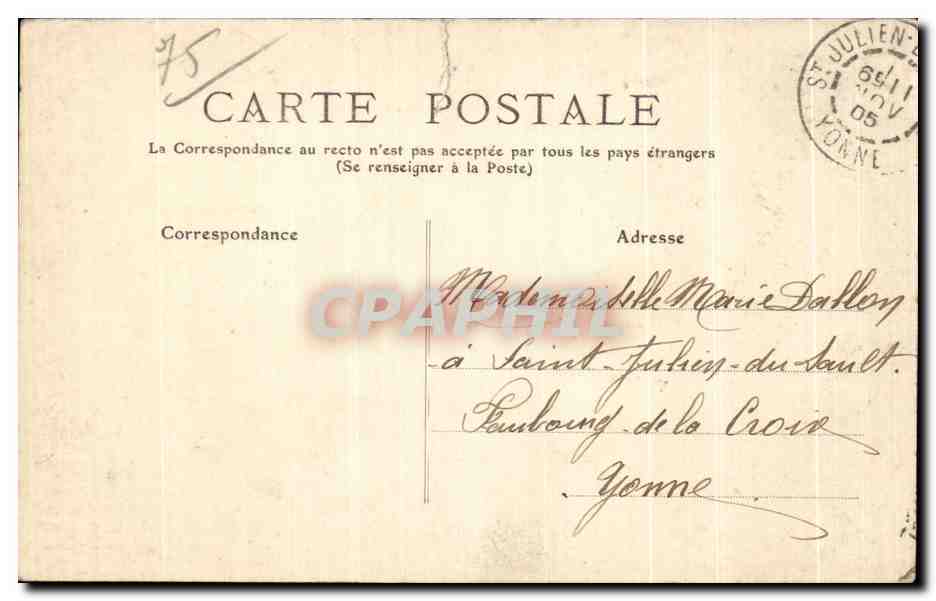 75
CARTE POSTALE
La Correspondance au recto n'est pas acceptée par tous les pays étrangers
(Se renseigner à la Poste)
ST JULIEN-
11
NOV
05
YONNE
Correspondance
Adresse
CPAPHIL
Mademoiselle Marie Dallon
à Saint-Julien-du-Sault.
Faubourg de la Croix
Yonne